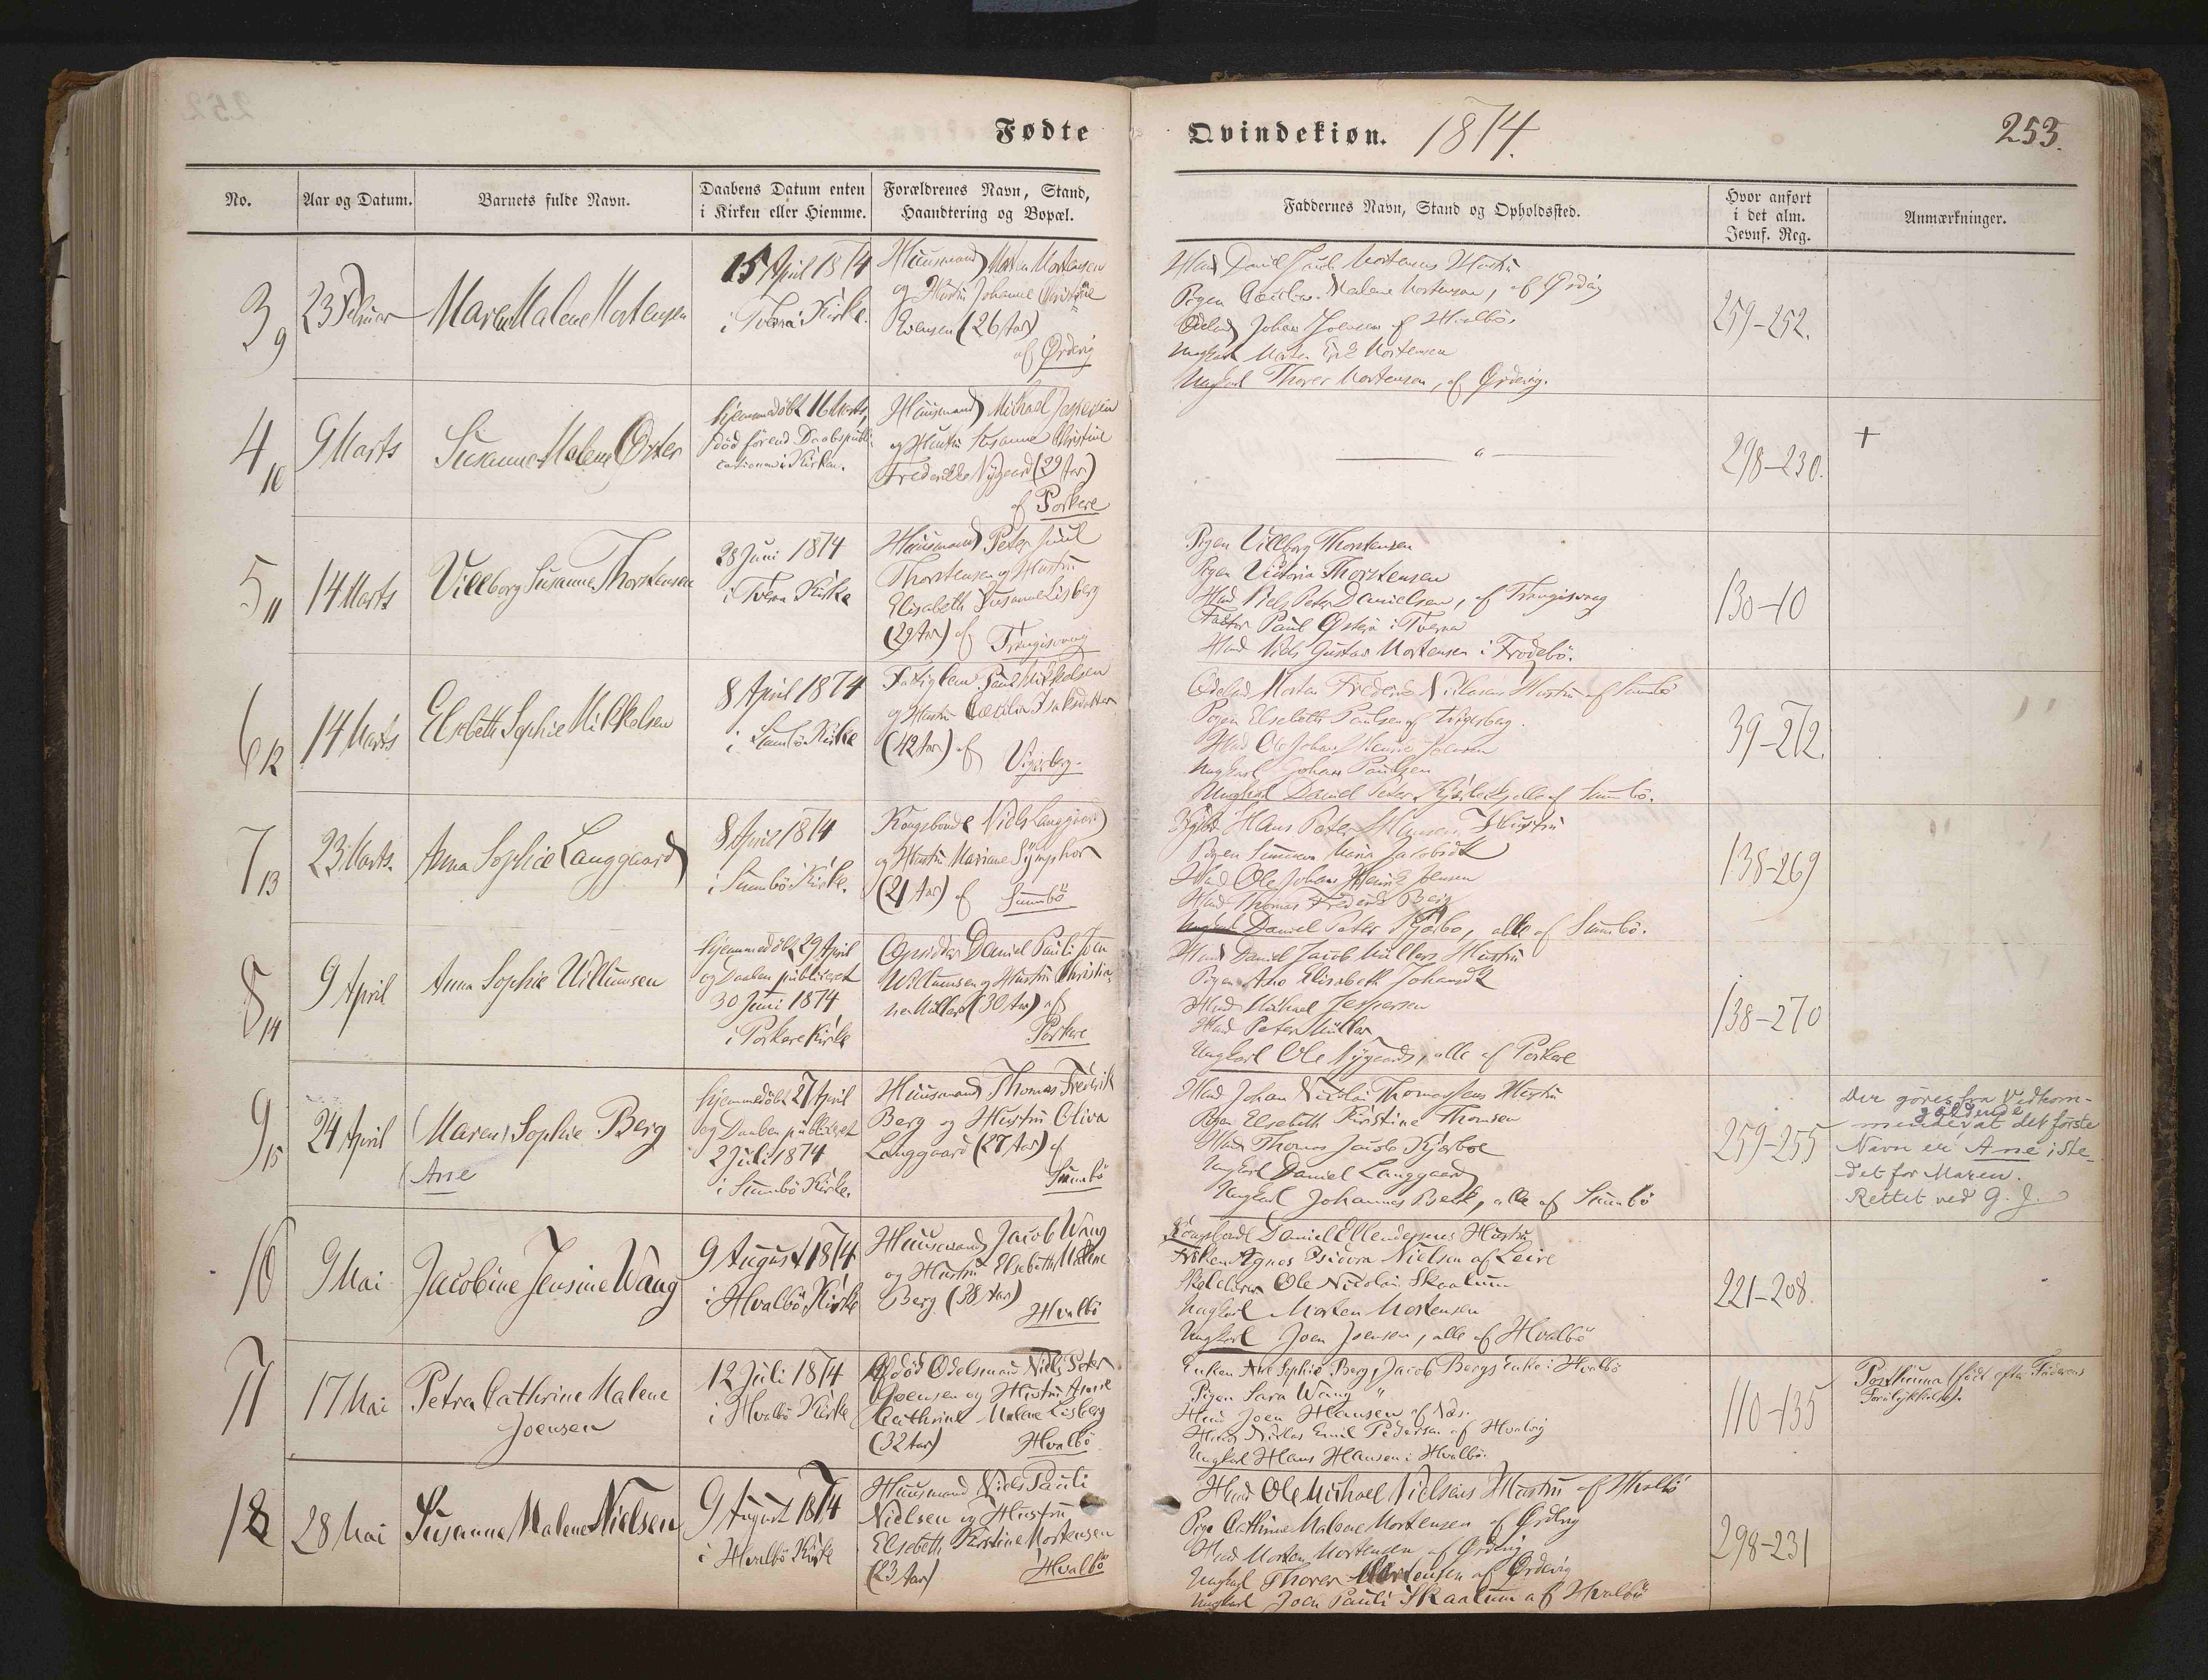 Fødte
Qvindekiøn. 1874.
253.
No.
Aar og Datum.
Barnets fulde Navn.
Daabens Datum enten
i Kirken eller Hiemme.
Forældrenes Navn, Stand,
Haandtering og Bopæl.
Faddernes Navn, Stand og Opholdssted.
Hvor anført
i det alm.
Jevnf. Reg.
Anmærkninger.
3
9
23 Februar
Maren Malene Mortensen
15 April 1874
i Tverå Kirke.
Huusmand Morten Mortensen
og Hustru Johanne Christine
(26 Aar)
af Ørdevig
Huusmd Daniel Jacob Mortensens Hustru
Pigen Malene Mortensen, af Ørdvig
Johan Joensen af Hvalbö.
Ungkarl Morten Mortensen
Ungkarl Thorer Mortensen, af Ørdevig.
259-252.
4
10
9 Marts
Susanne Malene Øster
hjemmedöbt 16 Marts,
död förend Daabspubli-
cationen i Kirken.
Huusmand Michael Jespersen
og Hustru Susanne Christine
Frederikke Nygaard (29 Aar)
af Porkere
298-230.
+
5
11
14 Marts
Villborg Susanne Thorstensen
28 Juni 1874
i Tverå Kirke
Huusmand Peter Juul
Thorstensen og Hustru
Elisabeth Susanne Lisberg
(29 Aar) af Trangisvaag
Pigen Villborg Thorstensen
Pigen Victoria Thorstensen
Hmd Niels Peter Danielsen, af Trangisvaag
Factor Paul Østerø i Tverå
Hmd Niels Gustav Mortensen i Frodebö.
130-10
6
12
14 Marts
Elsebeth Sophie Mikkelsen
8 April 1874
i Sumbö Kirke
Fattiglem Poul Mikkelsen
og Hustru Cæcilia Isaksdatter
(42 Aar) af Vigerberg.
Morten Frederik Niklasens Hustru af Sumbö
Pigen Elsebeth Paulsen af Vigerberg.
Hmd Ole Johan Henrik Joensen
Ungkarl Johan Paulsen
Ungkarl Daniel Peter af Sumbö.
39-272.
7
13
23 Marts.
Anna Sophie Langgaard
8 April 1874
i Sumbö Kirke.
Kongsbonde Niels Langgaard
og Hustru Mariane Symphor
(21 Aar) af Sumbö
Hans Peter Hansens Hustru
Pigen Maria Jacobsdt
Hmd Ole Johan Henrik Joensen
Hmd Thomas Frederik Berg
Ungkarl Daniel Peter Kjærbo, alle af Sumbö.
138-269
8
14
9 April
Anna Sophie Willumsen
hjemmedöbt 29 April
og Daaben publiceret
30 Juni 1874
i Porkere Kirke
Opsidder Daniel Pauli Joen
Willumsen og Hustru Christia-
ne Müller (30 Aar) af
Porkere
Hmd Daniel Jacob Müllers Hustru
Pigen Ane Elisabeth Johansdt
Hmd Michael Jespersen
Hmd Peter Müller
Ungkarl Ole Nygaard, alle af Porkere
138-270
9
15
24 April
(Maren) Sophie Berg
(Ane
hjemmedöbt 27 April
og Daaben publiceret
2 Juli 1874
i Sumbö Kirke.
Huusmand Thomas Fredrik
Berg og Hustru Oliva
Langgaard (27 Aar) af
Sumbö
Hmd Johan Nicolai Thomassens Hustru
Pigen Elsebeth Kirstine Thomsen
Hmd Thomas Jacob Kjærboe
Ungkarl Daniel Langgaard
Ungkarl Johannes Berg, alle af Sumbö
259-255
Der göres fra Vedkom-
gældende
mende at det förste
Navn er Ane iste-
det for Maren.
Rettet ved G. J.
10
9 Mai
Jacobine Jensine Wang
9 August 1874
i Hvalbö Kirke
Huusmand Jacob Wang
og Hustru Elsebeth Malene
Berg. (38 Aar)
Hvalbö
Kongsbonde Daniel Ellendersens Hustru
Fröken Agnes Isidora Nielsen af Leire
Skolelærer Ole Nicolai Skaalum
Ungkarl Morten Mortensen
Ungkarl Joen Joensen, alle af Hvalbö
221-208.
11
17 Mai
Petra Cathrine Malene
Joensen
12 Juli 1874
i Hvalbö Kirke
Afdöd Odelsmand Niels Peter
Joensen og Hustru Anne
Cathrine Malene Lisberg
(32 Aar) Hvalbö
Enken Ane Sophie Berg, Jacob Bergs Enke i Hvalbö
Pigen Sara Wang "
Hmd Joen Hansen af Næs.
Hmd Niklas Emil Pedersen af Hvalvig
Ungkarl Hans Hansen i Hvalbö.
110-135
Posthuma (födt efter Faderens
Forulykkelse).
12
28 Mai
Susanne Malene Nielsen
9 August 1874
i Hvalbö Kirke
Huusmand Niels Pauli
Nielsen og Hustru
Elsebeth Kirstine Mortensen
(23 Aar) Hvalbö
Hmd Ole Michael Nielsens Hustru af Hvalbö
Pige Cathrine Malene Mortensen af Ørdevig
Hmd Morten Mortensen af Ørdevig
Ungkarl Thorer Mortensen af Ørdevig
Ungkarl Joen Pauli Skaalum af Hvalbö
298-231